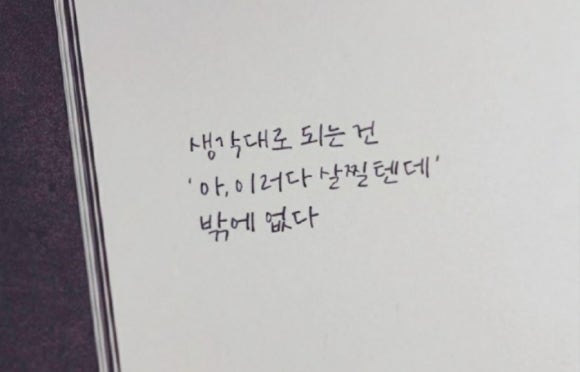 생각대로 되는 건
'아, 이러다 살찔텐데'
밖에 없다